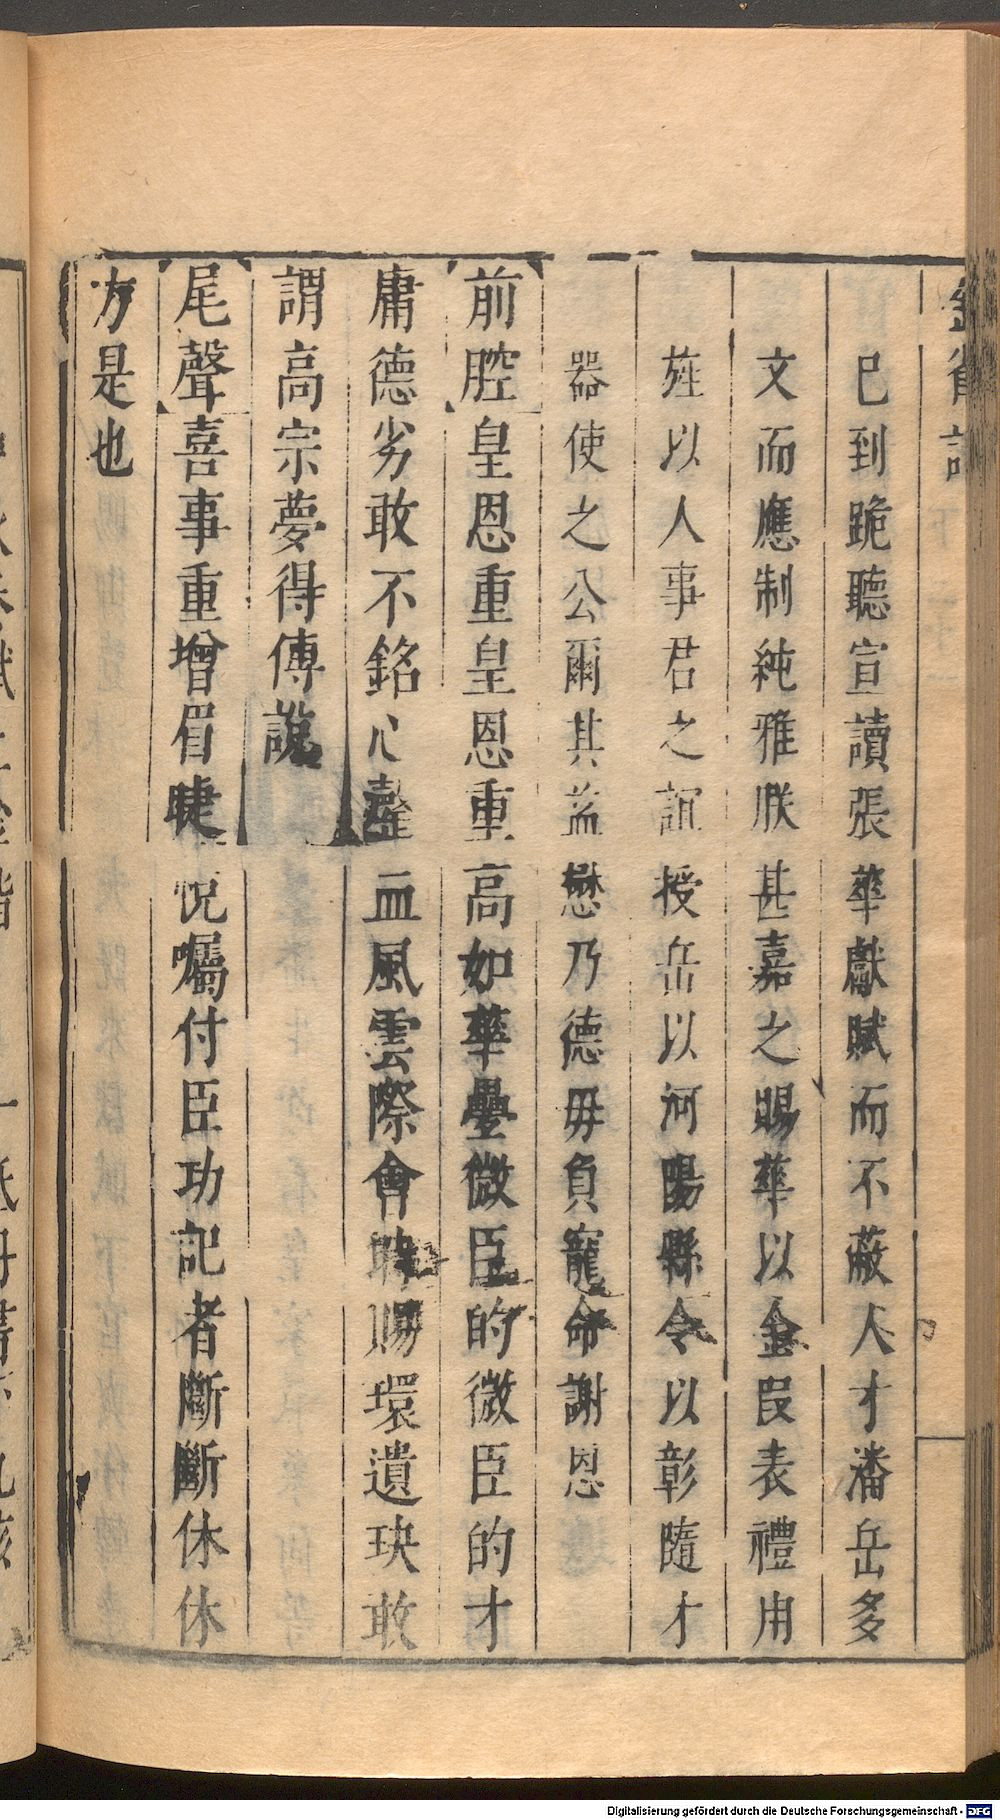 巳到跪聽宣讀張華獻賦而不蔽人才潘岳多
文而應制純雅朕甚嘉之賜華以金段表禮用
旌以人事君之誼授岳以河陽縣令以彰隨才
器使之公爾其益懋乃德毋負寵命謝恩
前腔皇恩重皇恩重高如華壘微臣的微臣的才
庸德劣敢不銘心瀝血風雲際會 賜環遺玦敢
謂高宗夢得傅說
尾聲喜事重增眉睫悅囑付臣功記者斷斷休休
方是也
Digitalisierung gefördert durch die Deutsche Forschungsgemeinschaft - DFG